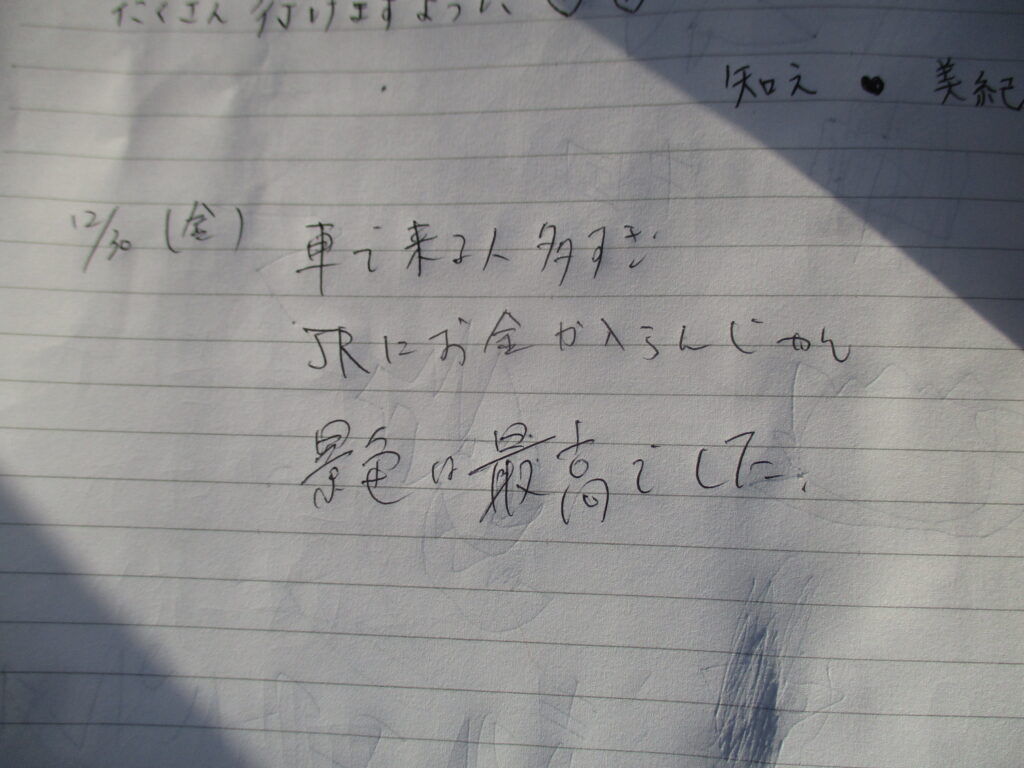 たくさん行けますように
知え ♥ 美紀
12/30 (金) 車で来る人多すぎ
JRにお金が入らんじゃん
景色は最高でした。